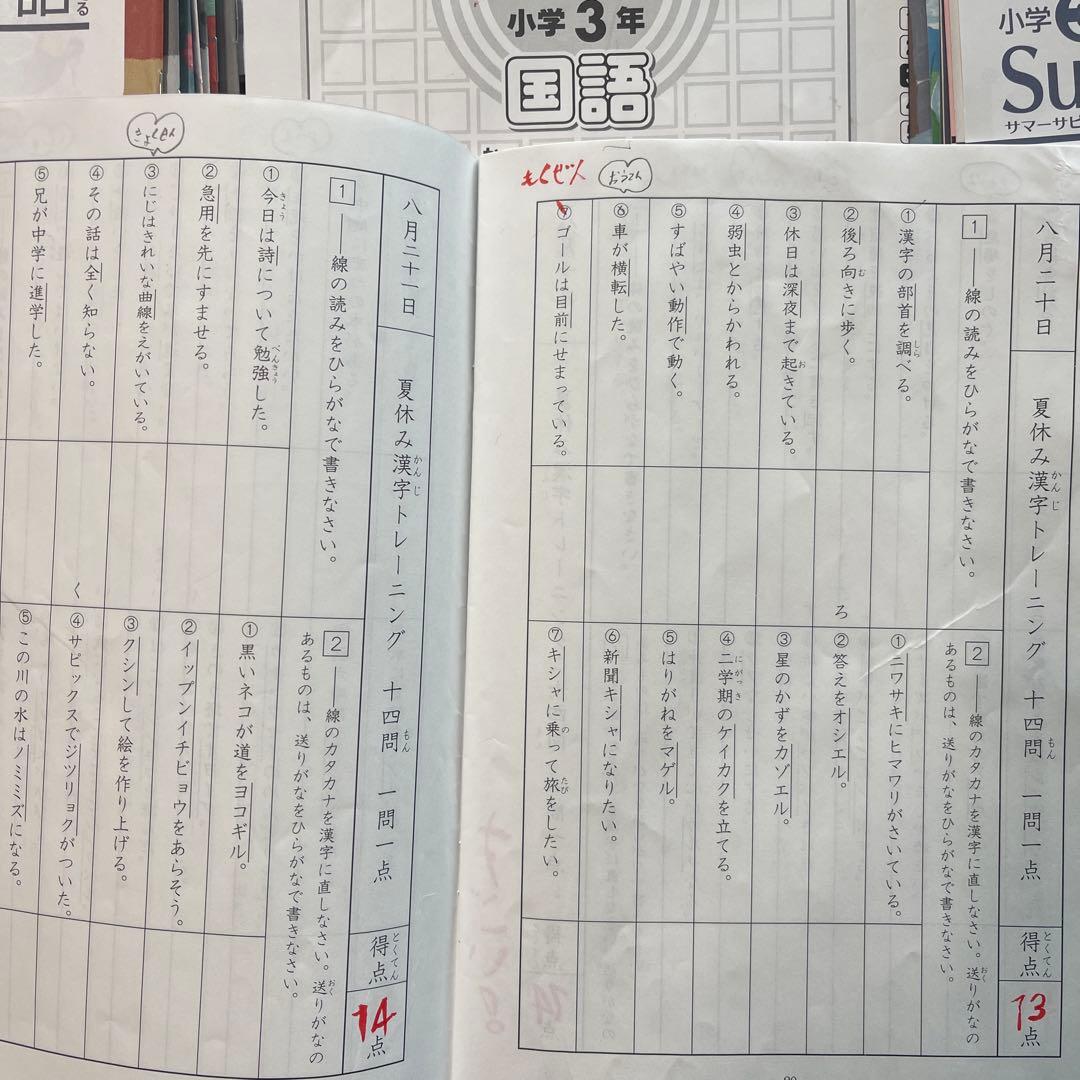 小学3年
国語
小学
Su
サマーサピ
る
もくぜん
おうてん
八月二十日 夏休み漢字トレーニング 十四問 一問一点 得点 13点
かんじ
もん
とくてん
1 ――線の読みをひらがなで書きなさい。
①漢字の部首を調べる。
しら
②後ろ向きに歩く。
む
ろ
③休日は深夜まで起きている。
お
④弱虫とからかわれる。
⑤すばやい動作で動く。
⑥車が横転した。
⑦ゴールは目前にせまっている。
2 ――線のカタカナを漢字に直しなさい。送りがなの
おく
あるものは、送りがなをひらがなで書きなさい。
①ニワサキにヒマワリがさいている。
②答えをオシエル。
③星のかずをカゾエル。
④二学期のケイカクを立てる。
にがっき
⑤はりがねをマゲル。
⑥新聞キシャになりたい。
⑦キシャに乗って旅をしたい。
の
たび
きょくせん
八月二十一日 夏休み漢字トレーニング 十四問 一問一点 得点 14点
かんじ
もん
とくてん
1 ――線の読みをひらがなで書きなさい。
①今日は詩について勉強した。
きょう
べんきょう
②急用を先にすませる。
③にじはきれいな曲線をえがいている。
④その話は全く知らない。
く
⑤兄が中学に進学した。
2 ――線のカタカナを漢字に直しなさい。送りがなの
おく
あるものは、送りがなをひらがなで書きなさい。
①黒いネコが道をヨコギル。
②イップンイチビョウをあらそう。
③クシンして絵を作り上げる。
④サピックスでジツリョクがついた。
⑤この川の水はノミミズになる。